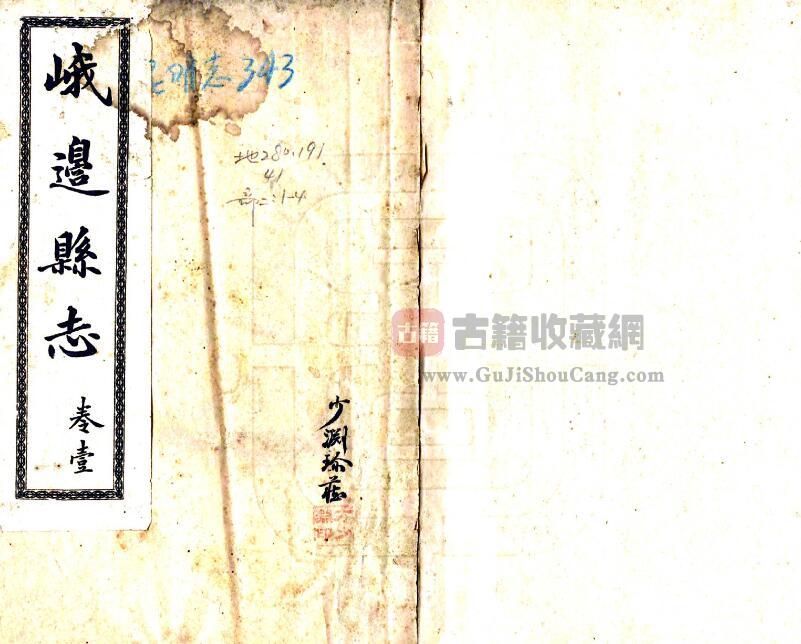 峨邊縣志
卷壹
志343
地280.191
41
:1-4
少淵
古籍
古籍收藏網
www.GuJiShouCang.com